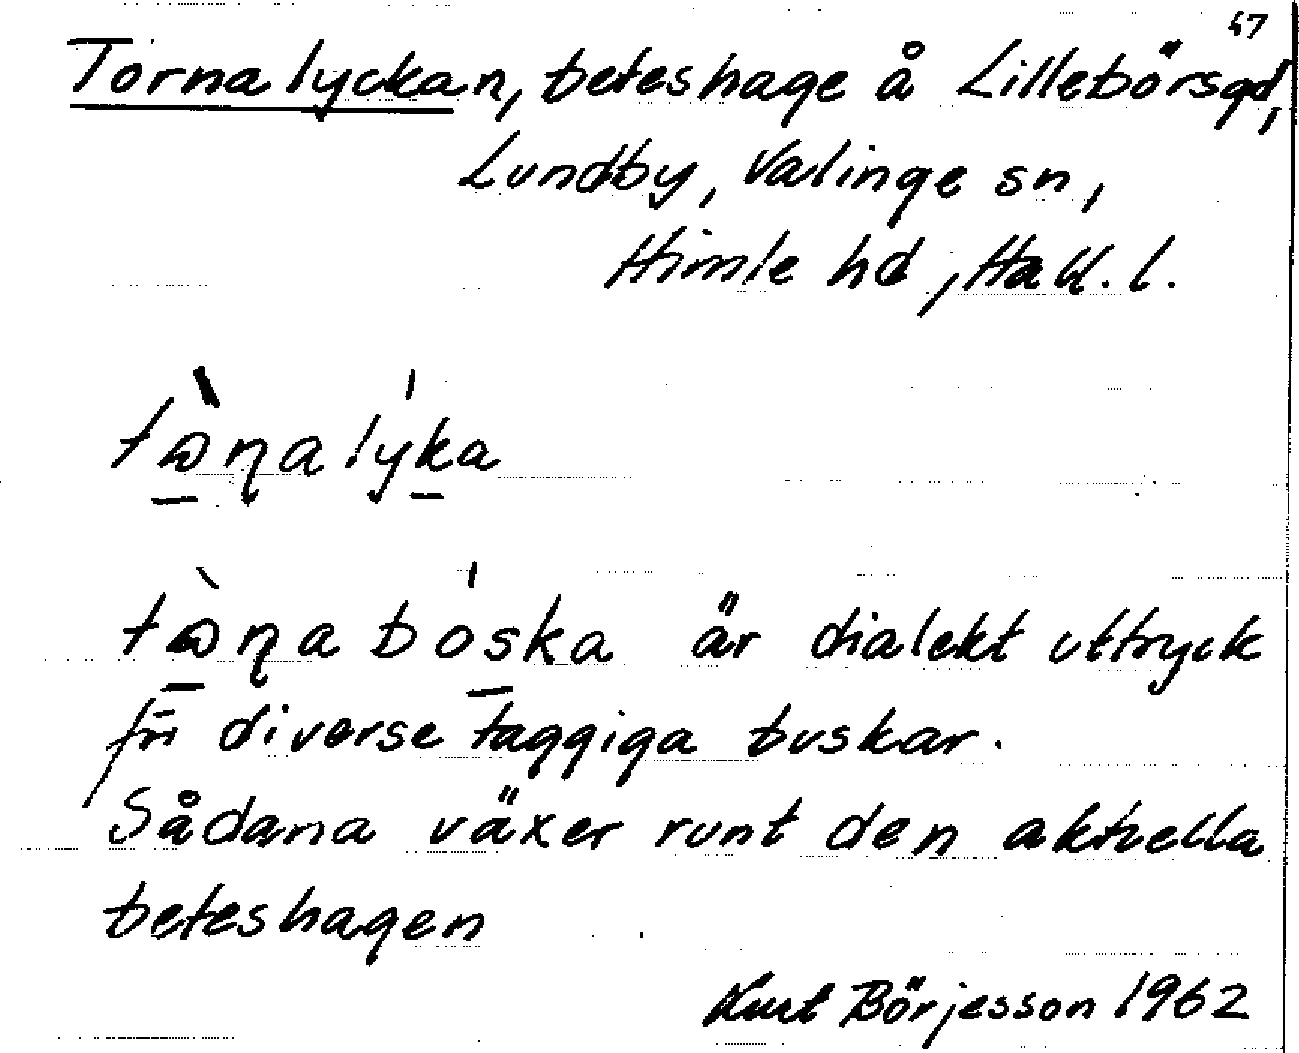 47
Tornalyckan, beteshage å Lillebörsgd,
Lundby, Valinge sn,
Himle hd, Hall. l.
tɷ̀ɳalýka
tɷ̀ɳabóska är dialekt uttryck
frn̄ diverse taggiga buskar.
Sådana växer runt den aktuella
beteshagen
Kurt Börjesson 1962